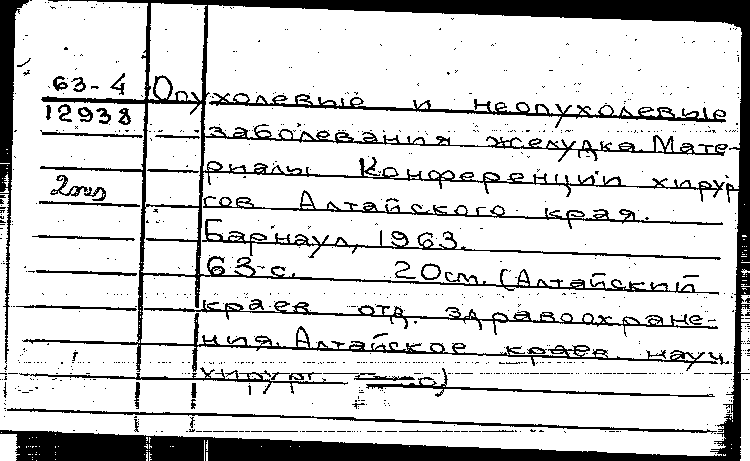 63-4 Опухолевые и неопухолевые
12938 заболевания желудка. Мате-
риалы Конференции хирур
2 гов Алтайского края.
Барнаул, 1963.
63 с. 20см. (Алтайский
краев отд. здравоохране-
ния. Алтайское краев. науч.
хирург. о)